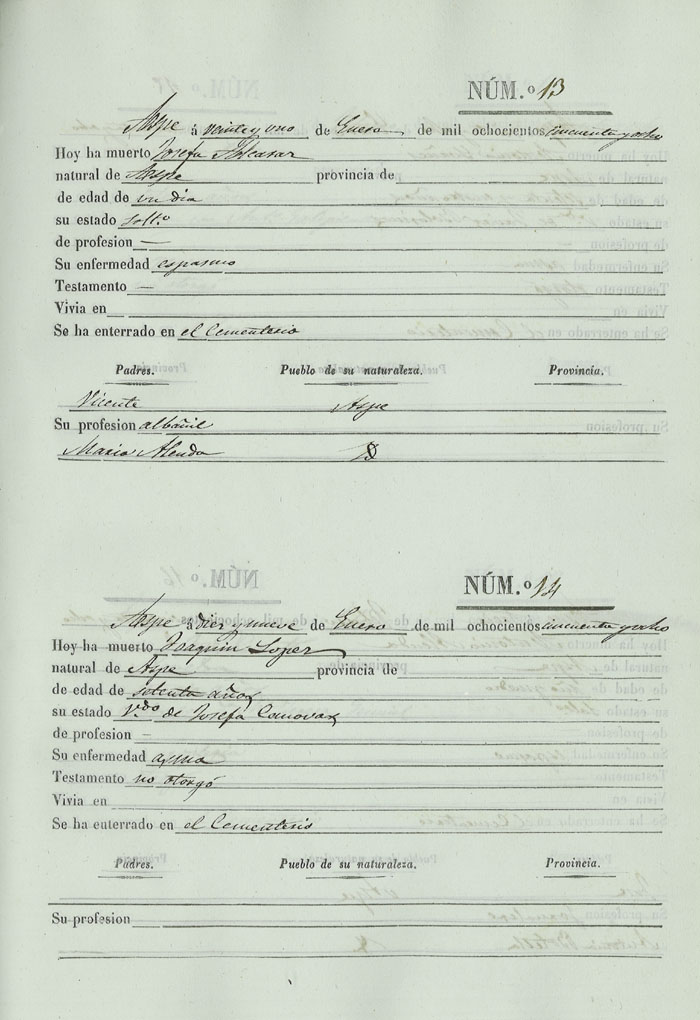 NÚM.º 13
Aspe á veinte y uno de Enero de mil ochocientos cincuenta y ocho
Hoy ha muerto Josefa Alcasar
natural de Aspe provincia de
de edad de un dia
su estado solt.º
de profesion —
Su enfermedad espasmo
Testamento —
Vivia en
Se ha enterrado en el Cementerio
Padres. Pueblo de su naturaleza. Provincia.
Vicente Aspe
Su profesion albañil
Maria Alenda
NÚM.º 14
Aspe á diez y nueve de Enero de mil ochocientos cincuenta y ocho
Hoy ha muerto Joaquin Lopez
natural de Aspe provincia de
de edad de setenta años
su estado V.do de Josefa Canovas
de profesion —
Su enfermedad asma
Testamento no otorgó
Vivia en
Se ha enterrado en el Cementerio
Padres. Pueblo de su naturaleza. Provincia.
Su profesion